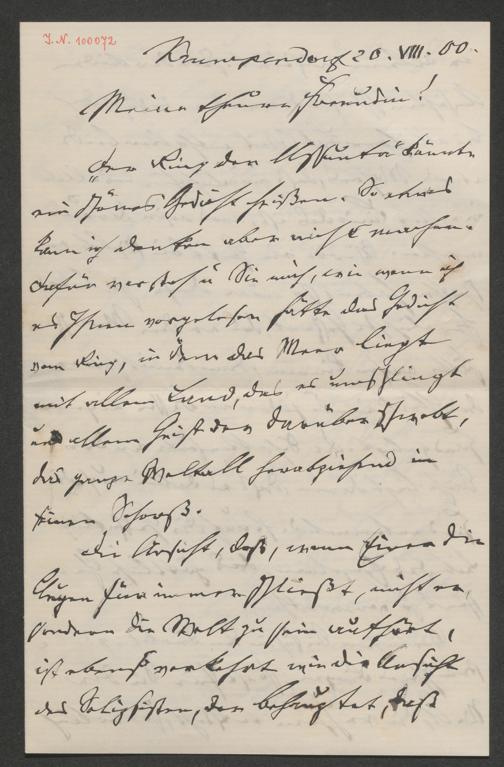 I. N. 100072
Krumpendorf 20. VIII. 00.
Meine theure Freundin!
„Der Ring der Assunta" könnte
ein schönes Gedicht heißen. So etwas
kann ich denken aber nicht machen.
Dafür verstehn Sie mich, wie wenn ich
es Ihnen vorgelesen hätte das Gedicht
vom Ring, in dem das Meer liegt
mit allem Land, das es umschlingt
und allem Geist der darüber schwebt,
das ganze Weltall herabziehend in
seinen Schooß.
Die Ansicht, daß, wenn Einer die
Augen für immer schließt, nicht er,
sondern die Welt zu sein aufhört,
ist ebenso verkehrt wie die Ansicht
des Solipsisten, der behauptet, daß